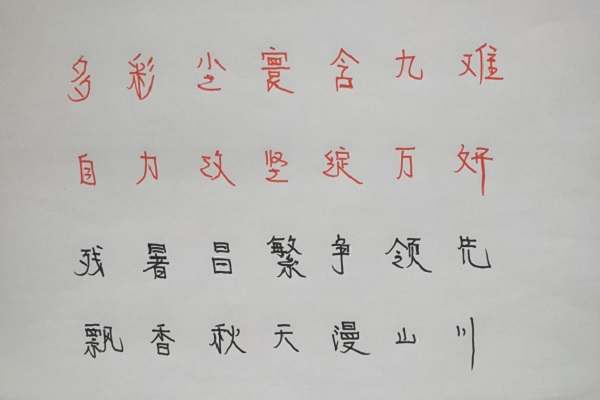 多彩尘寰含九难
自力攻坚绽万妍
残暑昌繁争领先
飘香秋天漫山川